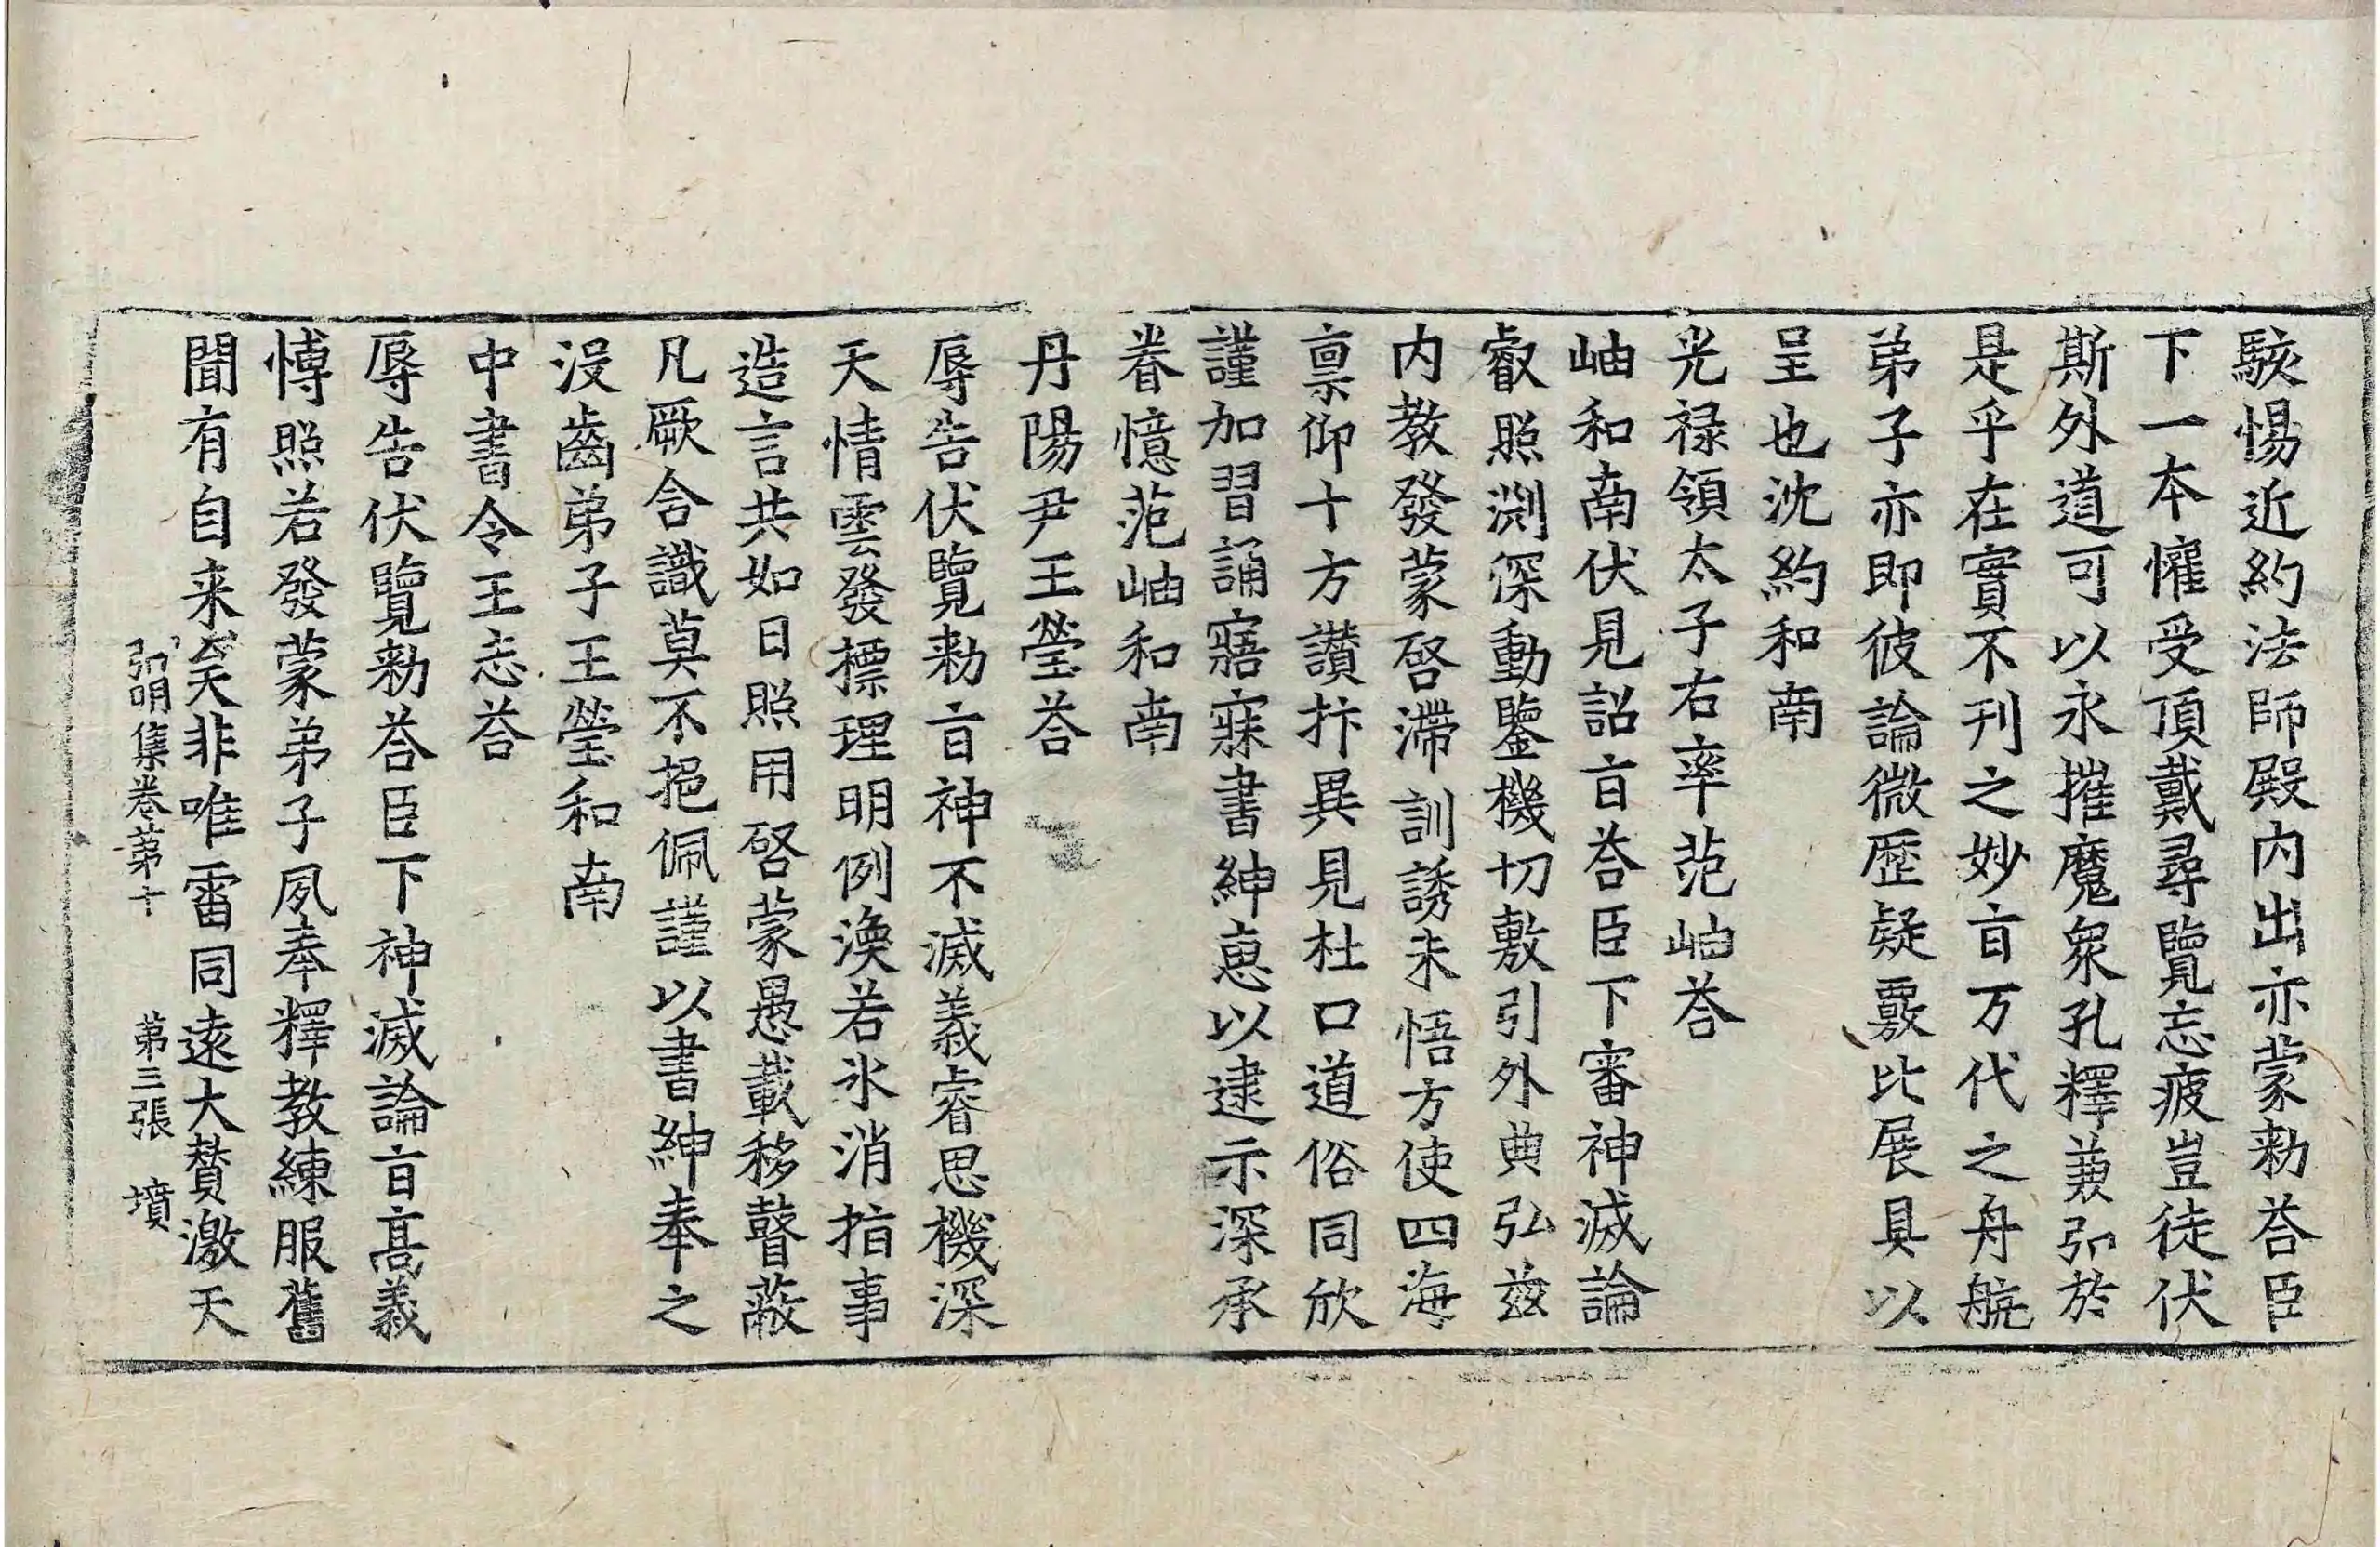 駭惕近約法師殿内出亦蒙勑荅臣
下一本懽受頂戴尋覽忘疲豈徒伏
斯外道可以永摧魔衆孔釋兼弘於
是乎在實不刊之妙㫖万代之舟航
弟子亦即彼論微歷疑覈比展具以
呈也沈約和南
光禄領太子右率范岫荅
岫和南伏見詔㫖荅臣下審神滅論
叡照渕深動鑒機切敷引外典弘兹
内教發蒙啓滯訓誘未悟方使四海
禀仰十方讃抃異見杜口道俗同欣
謹加習誦寤寐書紳惠以逮示深承
眷憶范岫和南
丹陽尹王瑩荅
辱告伏覽勑㫖神不滅義睿思機深
天情雲發標理明例渙若氷消指事
造言共如日照用啓蒙愚載移瞽蔽
凡厥含識莫不挹佩謹以書紳奉之
没齒弟子王瑩和南
中書令王志荅
辱告伏覽勑荅臣下神滅論㫖髙義
愽照若發蒙弟子夙奉釋教練服舊
聞有自来矣非唯雷同遠大賛激天
弘明集卷第十 第三張 墳